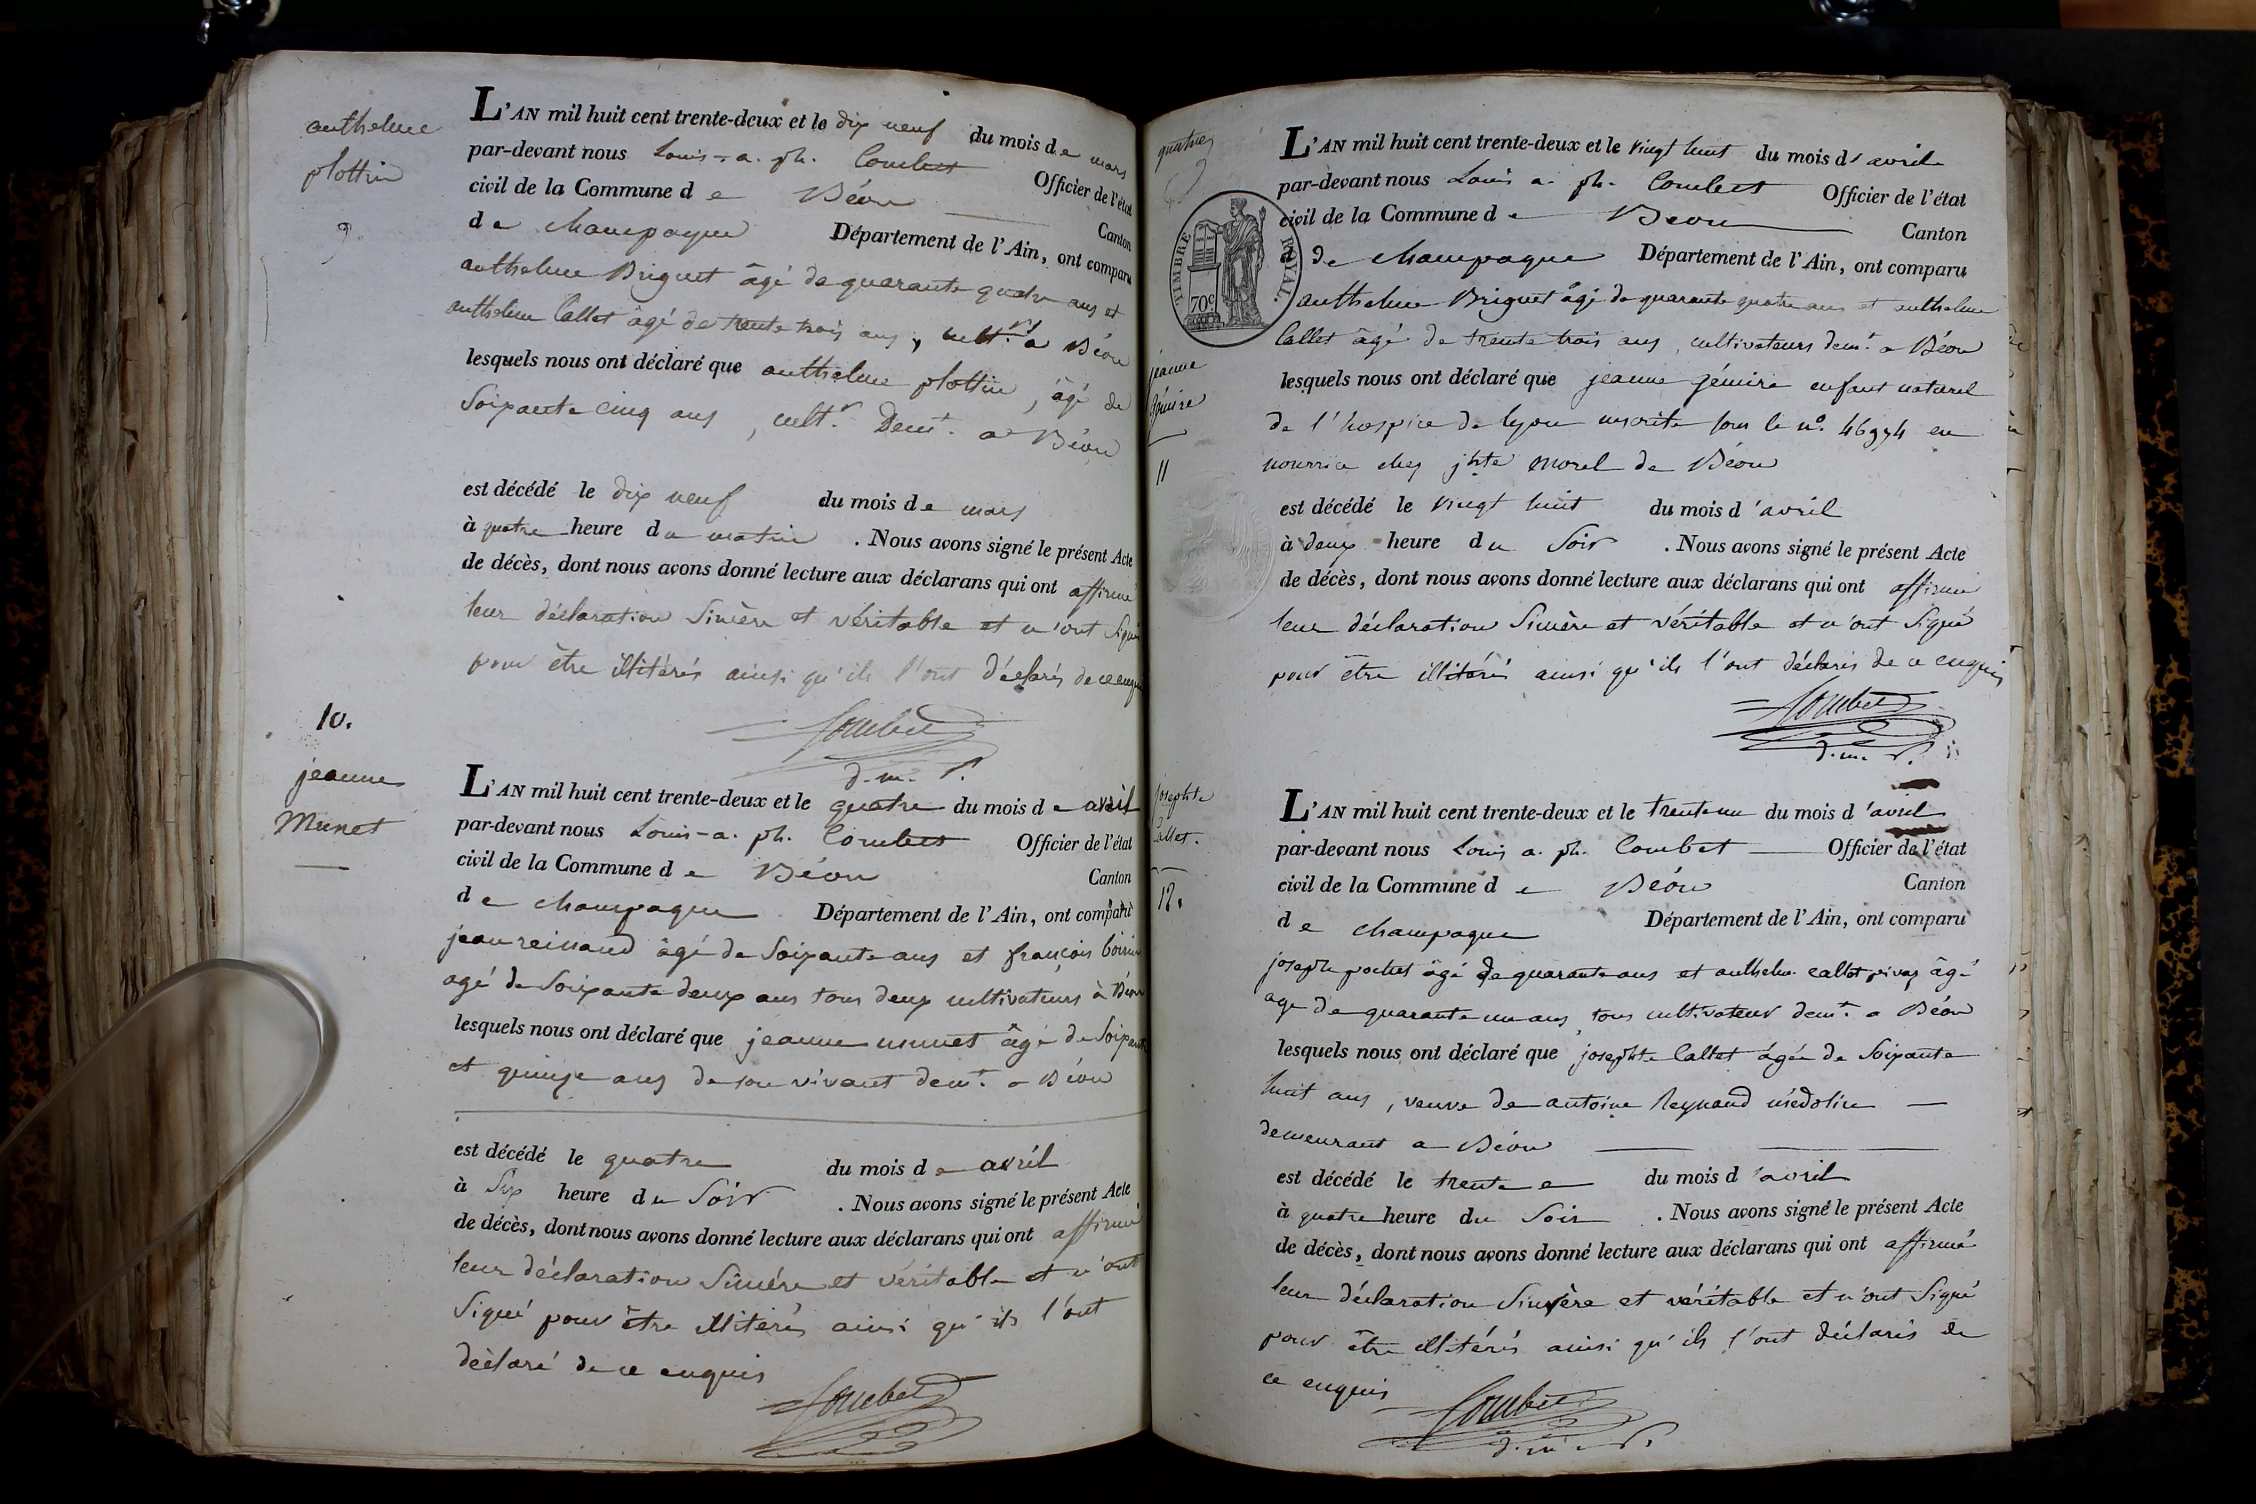 anthelme
plottin
9.
L'AN mil huit cent trente-deux et le dix neuf du mois de mars
par-devant nous Louis-a. ph. Combet Officier de l'état
civil de la Commune de Béon Canton
de champagne Département de l'Ain, ont comparu
anthelme Briguet âgé de quarante quatre ans et
anthelme Callet âgé de trente trois ans, cultrs a Béon
lesquels nous ont déclaré que anthelme plottin, âgé de
Soixante cinq ans, cultr. Demt. a Béon
est décédé le dix neuf du mois de mars
à quatre heure du matin . Nous avons signé le présent Acte
de décès, dont nous avons donné lecture aux déclarans qui ont affirmé
leur déclaration Sincère et véritable et n'ont Signé
pour être illitérés ainsi qu'ils l'ont déclarés de ce enquis
Combet
d. m. r.
10.
jeanne
Munet
L'AN mil huit cent trente-deux et le quatre du mois de avril
par-devant nous Louis-a. ph. Combet Officier de l'état
civil de la Commune de Béon Canton
de champagne Département de l'Ain, ont comparu
jean reinaud âgé de Soixante ans et françois
agé de Soixante deux ans tous deux cultivateurs à Béon
lesquels nous ont déclaré que jeanne munet âgé de Soixante
et quinze ans de son vivant demt. a Béon
est décédé le quatre du mois de avril
à Six heure du Soir . Nous avons signé le présent Acte
de décès, dont nous avons donné lecture aux déclarans qui ont affirmé
leur déclaration Sincére et véritable et n'ont
Signé pour être illitérés ainsi qu'ils l'ont
déclaré de ce enquis
Combet
quatre
TIMBRE ROYAL.
70c
jeanne
Zémire
11
L'AN mil huit cent trente-deux et le vingt huit du mois d'avril
par-devant nous Louis a. ph. Combet Officier de l'état
civil de la Commune de Béon Canton
de champagne Département de l'Ain, ont comparu
anthelme Briguet âgé de quarante quatre ans et anthelme
Callet âgé de trente trois ans, cultivateurs demt. a Béon
lesquels nous ont déclaré que jeanne zémire enfant naturel
de l'hospice de lyon inscrite sous le no. 46974 en
nourrice chez jhte morel de Béon
est décédé le vingt huit du mois d'avril
à deux heure du Soir . Nous avons signé le présent Acte
de décès, dont nous avons donné lecture aux déclarans qui ont affirmé
leur déclaration Sincère et véritable et n'ont Signé
pour être illitérés ainsi qu'ils l'ont déclarés de ce enquis
Combet
d. m. r.
josephte
Callet.
12.
L'AN mil huit cent trente-deux et le trente un du mois d'avril
par-devant nous Louis a. ph. Combet Officier de l'état
civil de la Commune de Béon Canton
de champagne Département de l'Ain, ont comparu
joseph pochet âgé de quarante ans et anthelme callet âgé
age de quarante un ans, tous cultivateur demt. a Béon
lesquels nous ont déclaré que josephte Callet âgée de Soixante
huit ans, veuve de antoine Reynaud
demeurant a Béon
est décédé le trente du mois d'avril
à quatre heure du Soir . Nous avons signé le présent Acte
de décès, dont nous avons donné lecture aux déclarans qui ont affirmé
leur déclaration Sincère et véritable et n'ont Signé
pour être illitérés ainsi qu'ils l'ont déclarés de
ce enquis
Combet
d. m. r.